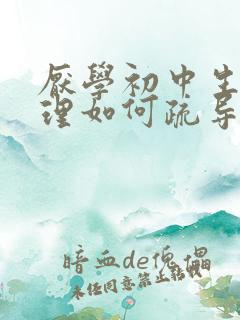 厭學初中生
理如何疏导
暗血de傀儡
未经同意禁止转载